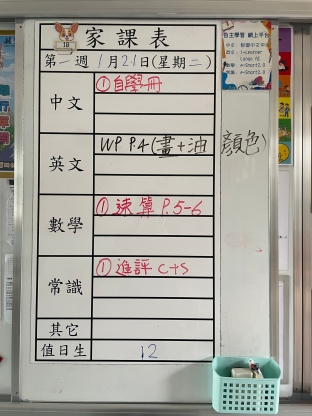 家課表
18
第一週 1月21日(星期二)
中文
①自學冊
英文
WP P.4(畫+油顏色)
數學
①速算 P.5-6
常識
①進評 C+S
其它
值日生
12
自主學習 網上平台